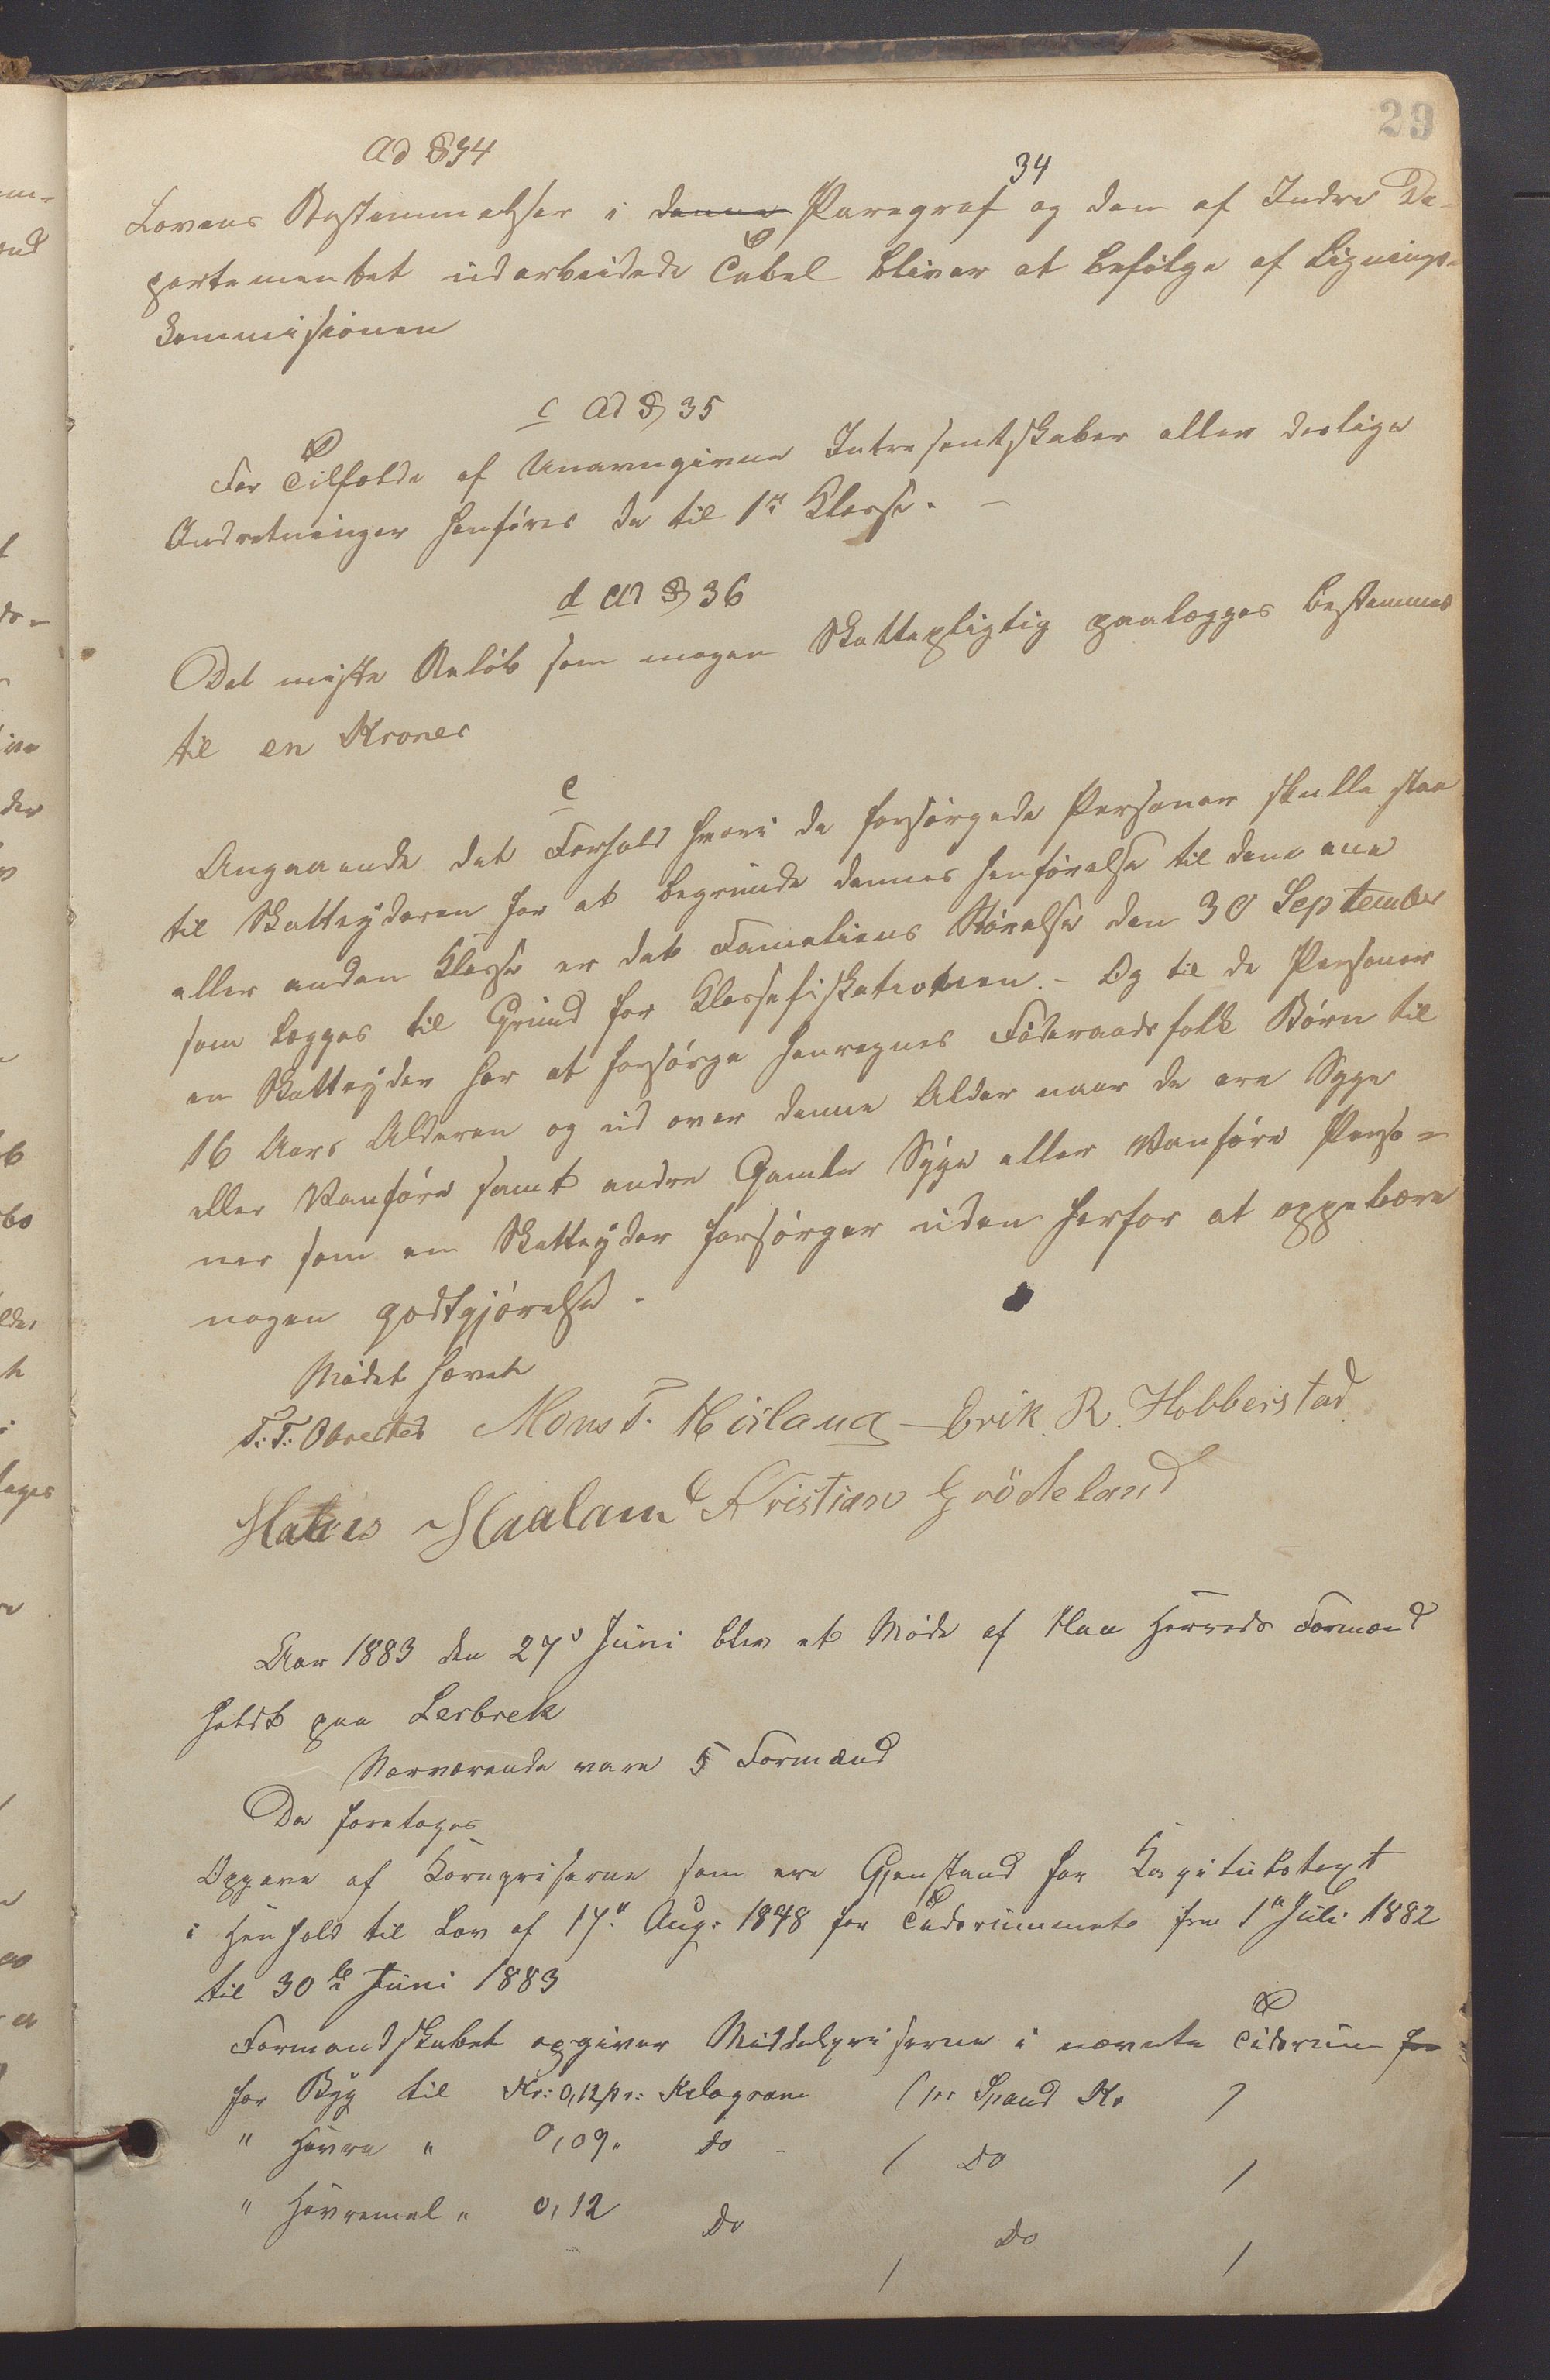 29
Ad § 34
34
Lovens Bestemmelser i denne Paragraf og den af Indre De-
partementet udarbeidede Tabel bliver at befølge af Lignings-
kommisionen
c Ad § 35
For Tilfælde af Unavngivne Intresentskaber eller deslige
Indretninger henføres de til 1ste Klasse. —
d Ad § 36
Det miste Beløb som nogen Skattepligtig paalægges bestemmes
til en Krones
e
Angaaende det Forhold hvori de forsørgede Personer skulle staa
til Skatteyderen for at begrunde dennes henførelse til den ene
eller anden Klasse er det Familiens Størelse den 30 September
som lægges til Grund for Klassefiskationen. – Og til de Personer
en Skatteyder har at forsørge henregnes Føderaadsfolk Børn til
16 Aars Alderen og ud over denne Alder naar de ere Syge
eller Vanføre samt andre Gamle Syge eller Vanføre Perso-
ner som en Skatteyder forsørger uden herfor at oppebære
nogen godtgjørelse.
Mødet hævet
T. T. Obrestad Mons T. Høiland – Erik R. Hobberstad
Haaland Kristian Grödeland
Aar 1883 den 27de Juni blev et Møde af Haa Herreds Formænd
holdt paa Lerbrek
Nærværende vare 5 Formænd
De foretoges
Opgave af Kornpriserne som ere Gjenstand for Kapitulstaxt
i Henhold til Lov af 17de Aug. 1848 for Tidsrummet fra 1ste Juli 1882
til 30te Juni 1883
Formandskabet opgiver Middelpriserne i nævnte Tidsrum for
for Byg til Kr: 0,12 pr: Kilogram ( pr Spand Kr )
" Havre " 0,09 " do - ( do )
" Havremel " 0,12 do ( do )